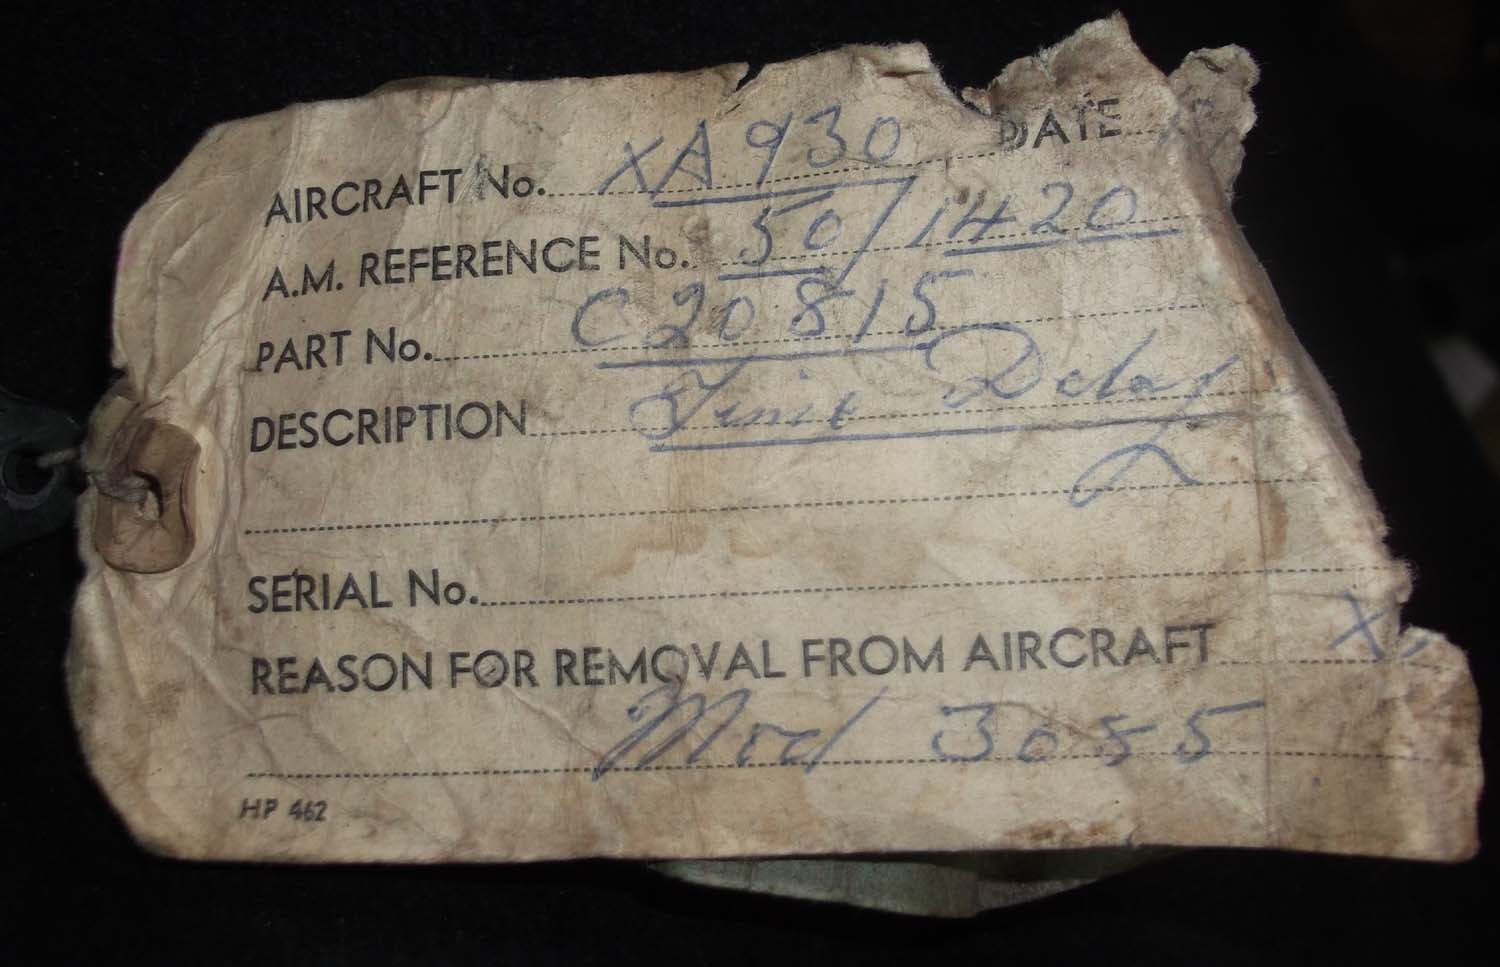 DATE
AIRCRAFT No. XA 930
A.M. REFERENCE No. 50/1420
PART No. C20815
DESCRIPTION Time Delay
SERIAL No.
REASON FOR REMOVAL FROM AIRCRAFT X
Mod 3055
HP 462